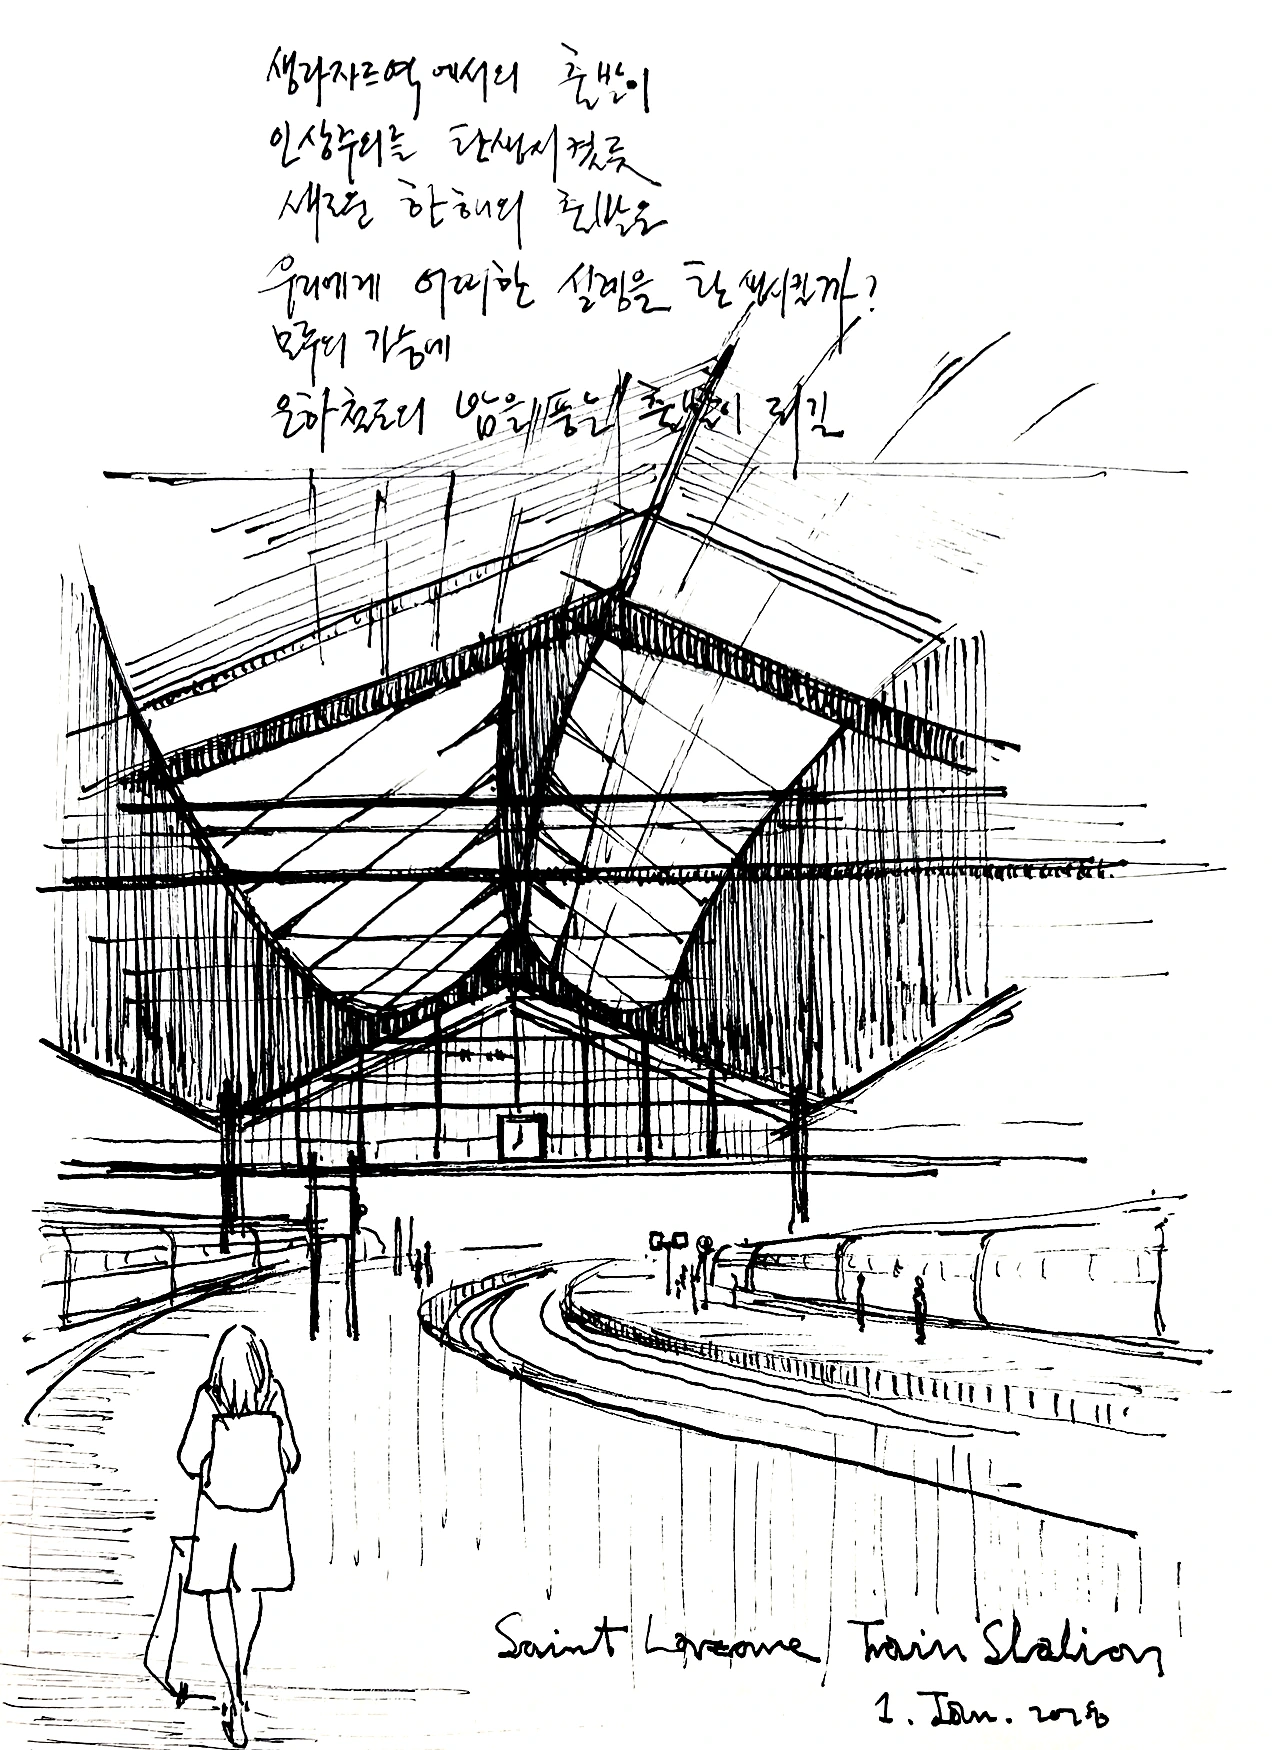 생라자르역에서의 출발이
인상주의를 탄생시켰듯
새로운 한해의 출발은
우리에게 어떠한 설렘을 탄생시킬까?
모두의 가슴에
은하철도의 밤을 품는 출발이 되길
Saint Lazare Train Station
1. Jan.